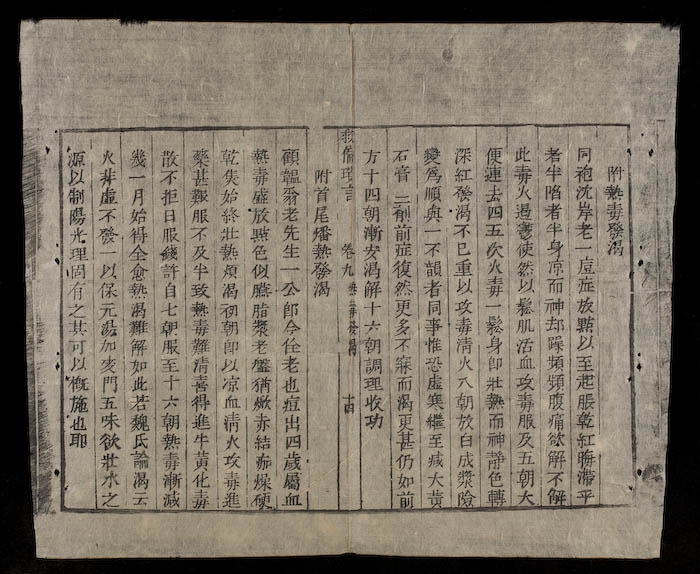 附熱毒發渴
同袍沈岸老一痘症放點以至起脹乾紅晦滯平
者半陷者半身凉而神却躁頻頻腹痛欲解不解
此毒火遏鬱使然以鬆肌活血攻毒服及五朝大
便連去四五次火毒一鬆身即壯熱而神靜色轉
深紅發渴不已重以攻毒清火八朝放白成漿險
變爲順與一不韻者同事惟恐虛寒繼至減大黃
石膏二劑前症復然更多不寐而渴更甚仍如前
方十四朝漸安渴解十六朝調理收功
救偏瑣言
卷九
熱毒發渴
十四
附首尾燔熱發渴
顧韞翁老先生一公郎令侄老也痘出四歲屬血
熱毒盛放點色似臙脂漿老盤猶焮赤結痂燥硬
乾焦始終壯熱煩渴初朝即以凉血清火攻毒進
藥甚艱服不及半致熱毒難清喜得進牛黃化毒
散不拒日服錢許自七朝服至十六朝熱毒漸減
幾一月始得全愈熱渴難解如此若魏氏論渴云
火非虛不發一以保元湯加麥門五味欲壯水之
源以制陽光理固有之其可以槪施也耶